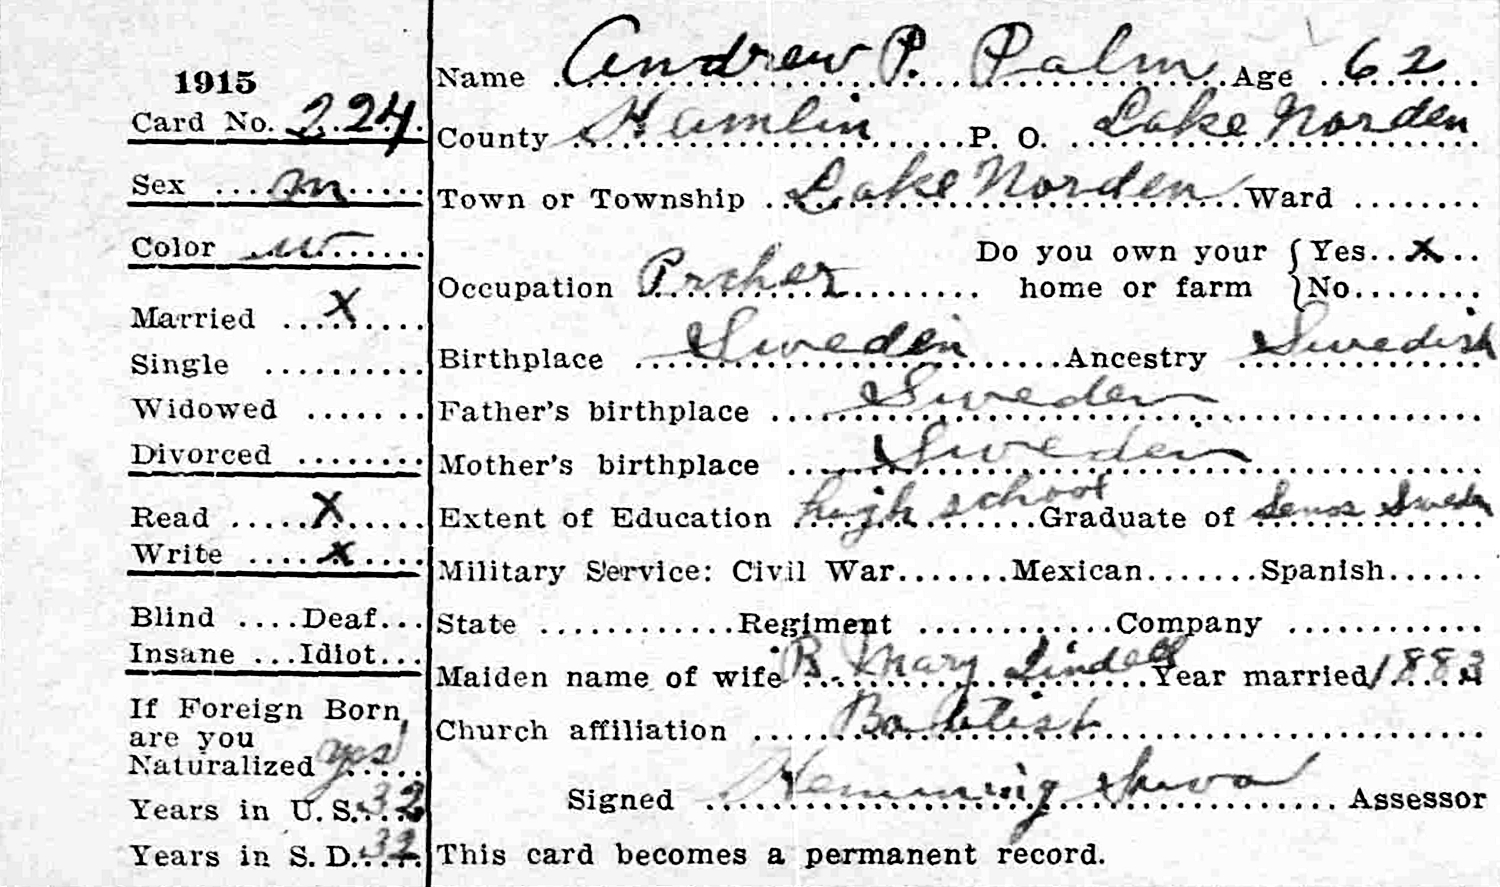 1915
Card No. 224
Sex m
Color w
Married X
Single
Widowed
Divorced
Read X
Write x
Blind Deaf
Insane Idiot
If Foreign Born,
are you
Naturalized yes
Years in U. S. 32
Years in S. D. 32
Name Andrew P. Palm Age 62
County Hamlin P. O. Lake Norden
Town or Township Lake Norden Ward
Occupation
Do you own your home or farm Yes X
No
Birthplace Sweden Ancestry Swedish
Father's birthplace Sweden
Mother's birthplace Sweden
Extent of Education high school Graduate of Sweden
Military Service: Civil War Mexican Spanish
State Regiment Company
Maiden name of wife B Mary Lindell Year married 1883
Church affiliation Baptist
Signed Hemming Assessor
This card becomes a permanent record.